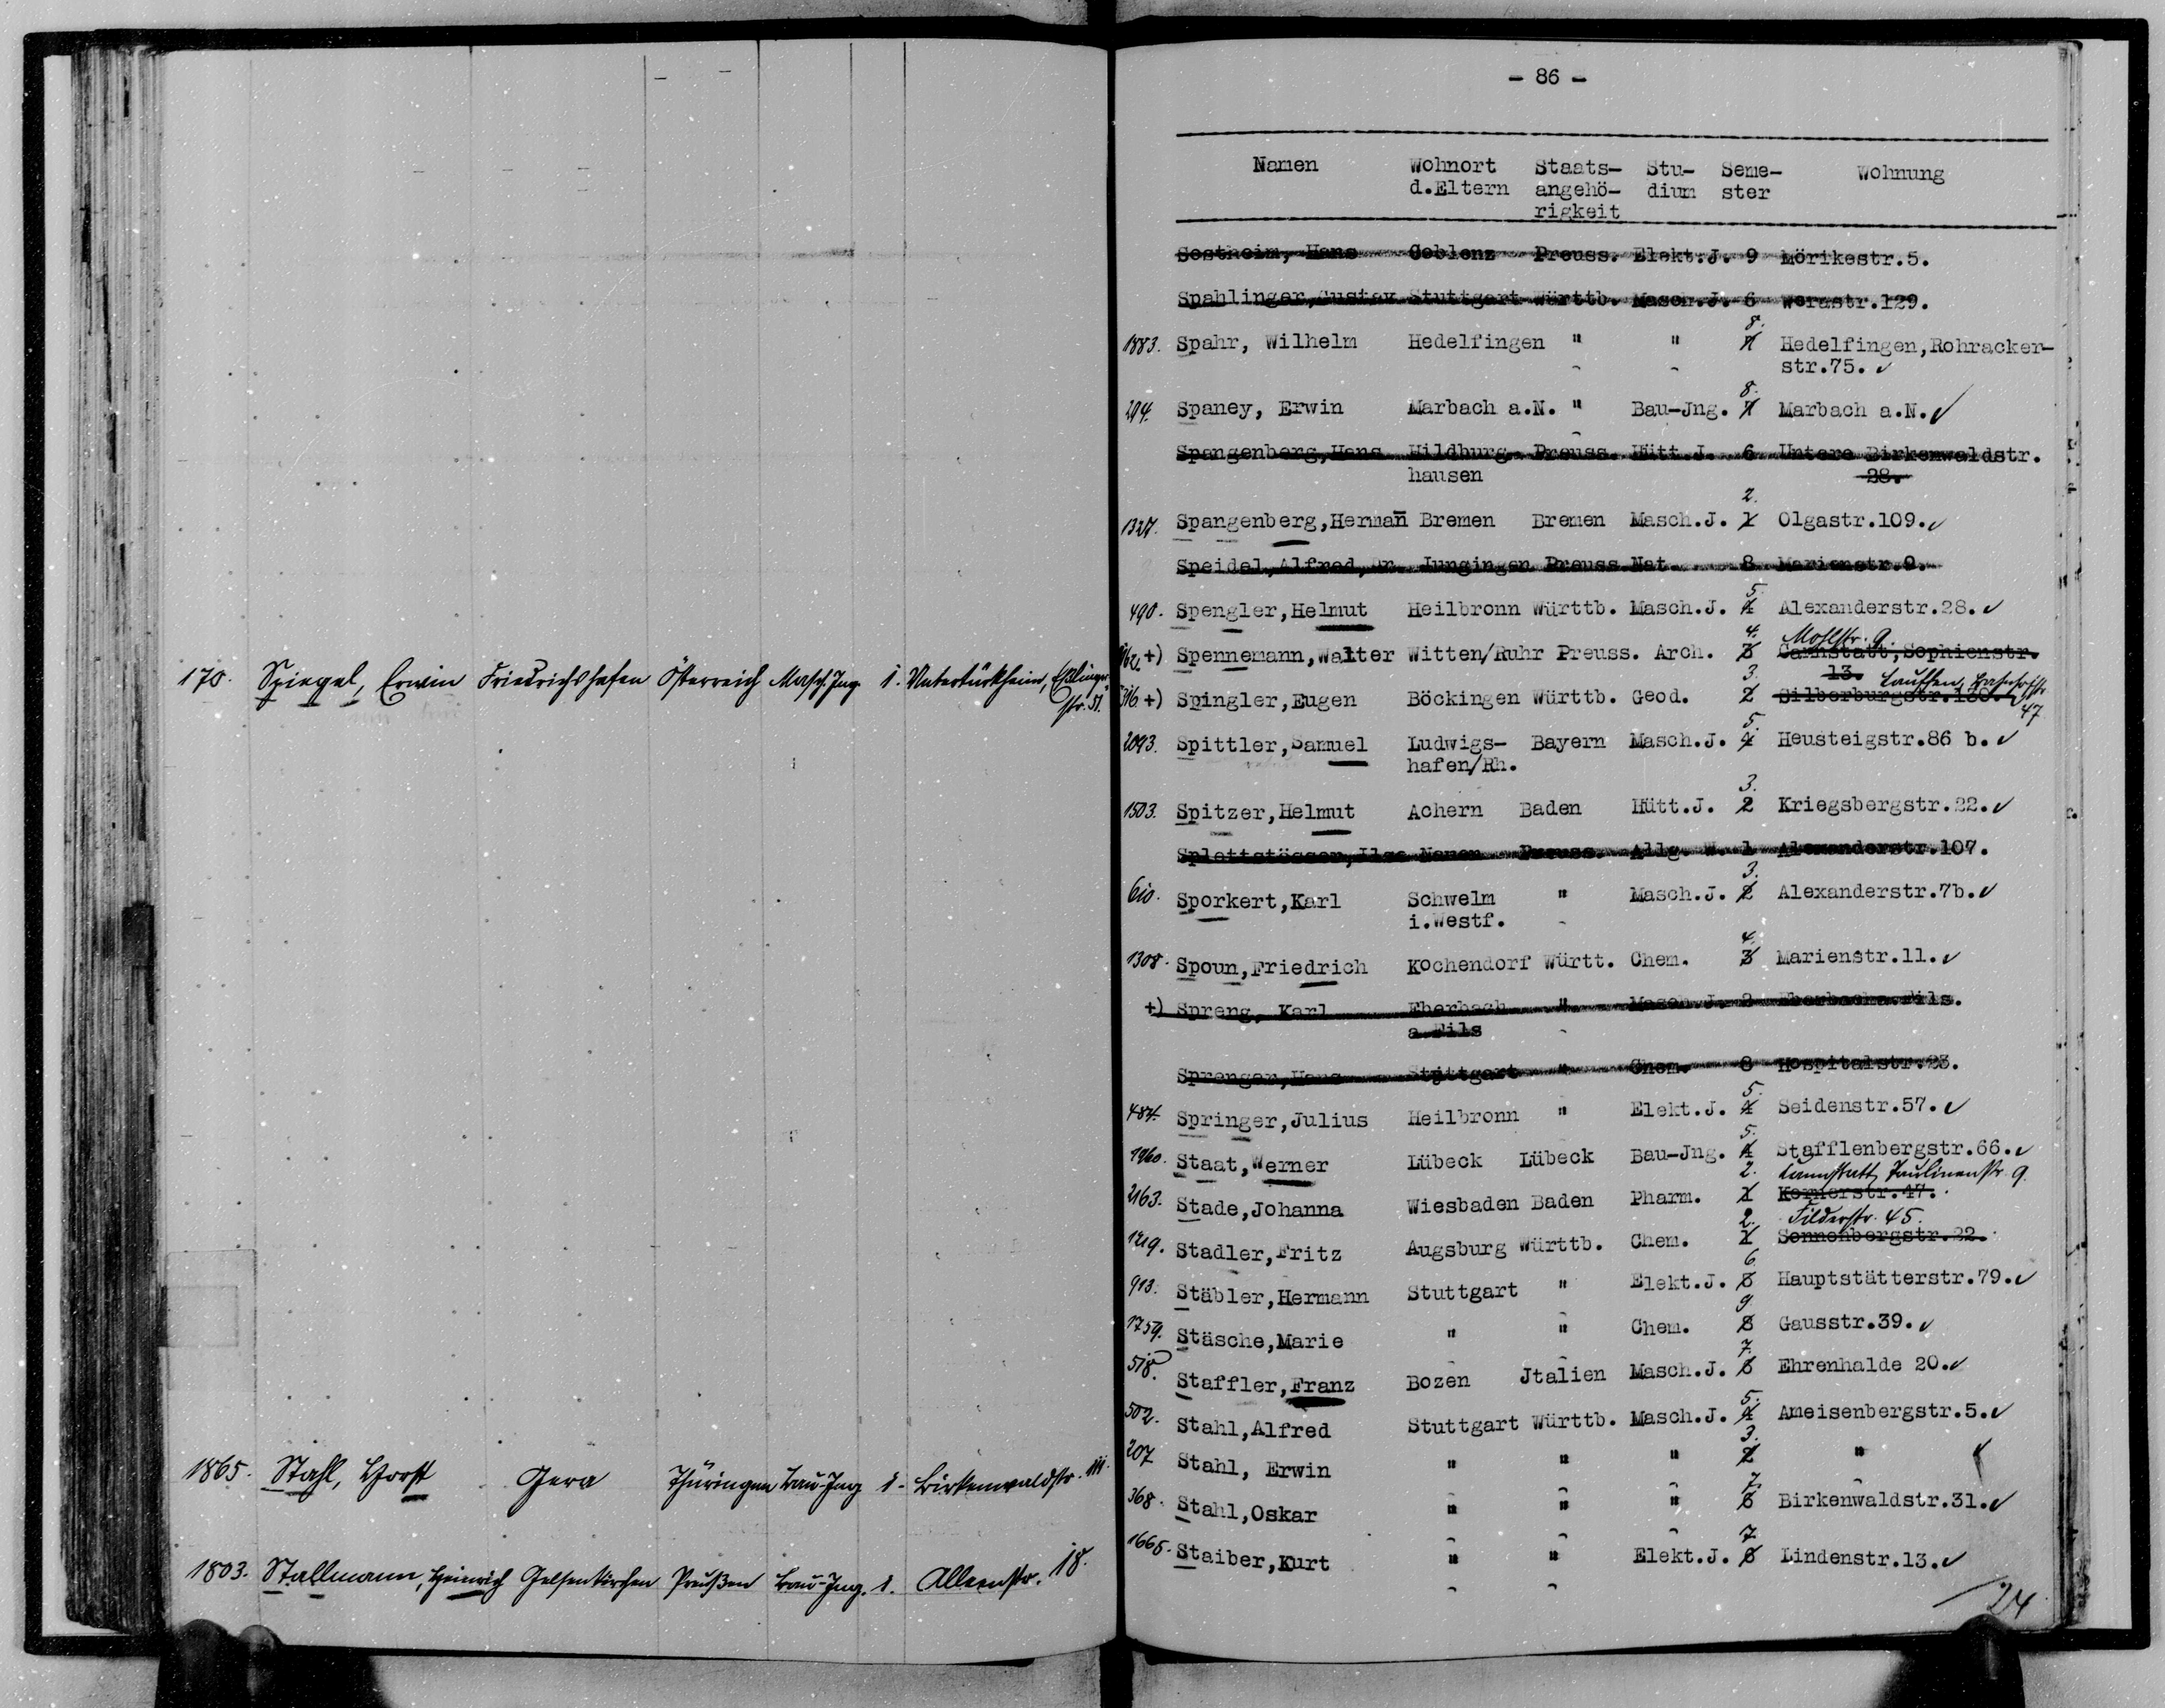 170. Spiegel, Erwin Friedrichshafen Österreich Masch. Ing. 1. Untertürkheim, Esslinger-
str. 51.
1865. Stahl, Horst Gera Thüringen Bau-Ing 1. Birkenwaldstr. 111.
1803. Stallmann, Heinrich Gelsenkirchen Preußen Bau-Ing. 1. Alleenstr. 18.
- 86 -
Namen Wohnort Staats- Stu- Seme- Wohnung
d.Eltern angehö- dium ster
rigkeit
Sostheim, Hans Coblenz Preuss. Elekt.J. 9 Mörikestr.5.
Spahlinger,Gustav Stuttgart Württb. Masch.J. 6 Werastr.129.
8.
1883. Spahr, Wilhelm Hedelfingen " " 7 Hedelfingen,Rohracker-
str.75.
8.
294. Spaney, Erwin Marbach a.N. " Bau-Jng. 7 Marbach a.N.
Spangenberg,Hans Hildburg- Preuss. Hütt.J. 6 Untere Birkenwaldstr.
hausen 28.
2.
1327. Spangenberg,Herman̄ Bremen Bremen Masch.J. 1 Olgastr.109.
Speidel,Alfred,Dr. Jungingen Preuss Nat. 8 Marienstr.9.
5.
490. Spengler,Helmut Heilbronn Württb. Masch.J. 4 Alexanderstr.28.
4. Mohlstr. 9.
+) Spennemann,Walter Witten/Ruhr Preuss. Arch. 3 Cannstatt,Sophienstr.
3. 13. Lauffen, Bahnhofstr.
+) Spingler,Eugen Böckingen Württb. Geod. 2 Silberburgstr.180. 47
5.
2093. Spittler,Samuel Ludwigs- Bayern Masch.J. 4 Heusteigstr.86 b.
hafen/Rh.
3.
1503. Spitzer,Helmut Achern Baden Hütt.J. 2 Kriegsbergstr.22.
Splettstösser,Ilse Nauen Preuss. Allg. W. 1 Alexanderstr.107.
3.
610. Sporkert,Karl Schwelm " Masch.J. 2 Alexanderstr.7b.
i.Westf.
4.
1308. Spoun,Friedrich Kochendorf Württ. Chem. 3 Marienstr.11.
+) Spreng, Karl Eberbach " Masch.J. 2 Eberbach a.Fils.
a.Fils
Sprenger,Hans Stuttgart " Chem. 8 Hospitalstr.23.
5.
484. Springer,Julius Heilbronn " Elekt.J. 4 Seidenstr.57.
5.
1960. Staat,Werner Lübeck Lübeck Bau-Jng. 4 Stafflenbergstr.66.
2. Cannstatt, Paulinenstr. 9.
2163. Stade,Johanna Wiesbaden Baden Pharm. 1 Kernerstr.47.
2. Filderstr. 45.
1219. Stadler,Fritz Augsburg Württb. Chem. 1 Sonnenbergstr.22.
6.
913. Stäbler,Hermann Stuttgart " Elekt.J. 5 Hauptstätterstr.79.
9.
1759. Stäsche,Marie " " Chem. 8 Gausstr.39.
7.
518. Staffler,Franz Bozen Jtalien Masch.J. 6 Ehrenhalde 20.
5.
502. Stahl,Alfred Stuttgart Württb. Masch.J. 4 Ameisenbergstr.5.
3.
207 Stahl, Erwin " " " 2 "
7.
368. Stahl,Oskar " " " 6 Birkenwaldstr.31.
7.
1665. Staiber,Kurt " " Elekt.J. 6 Lindenstr.13.
24